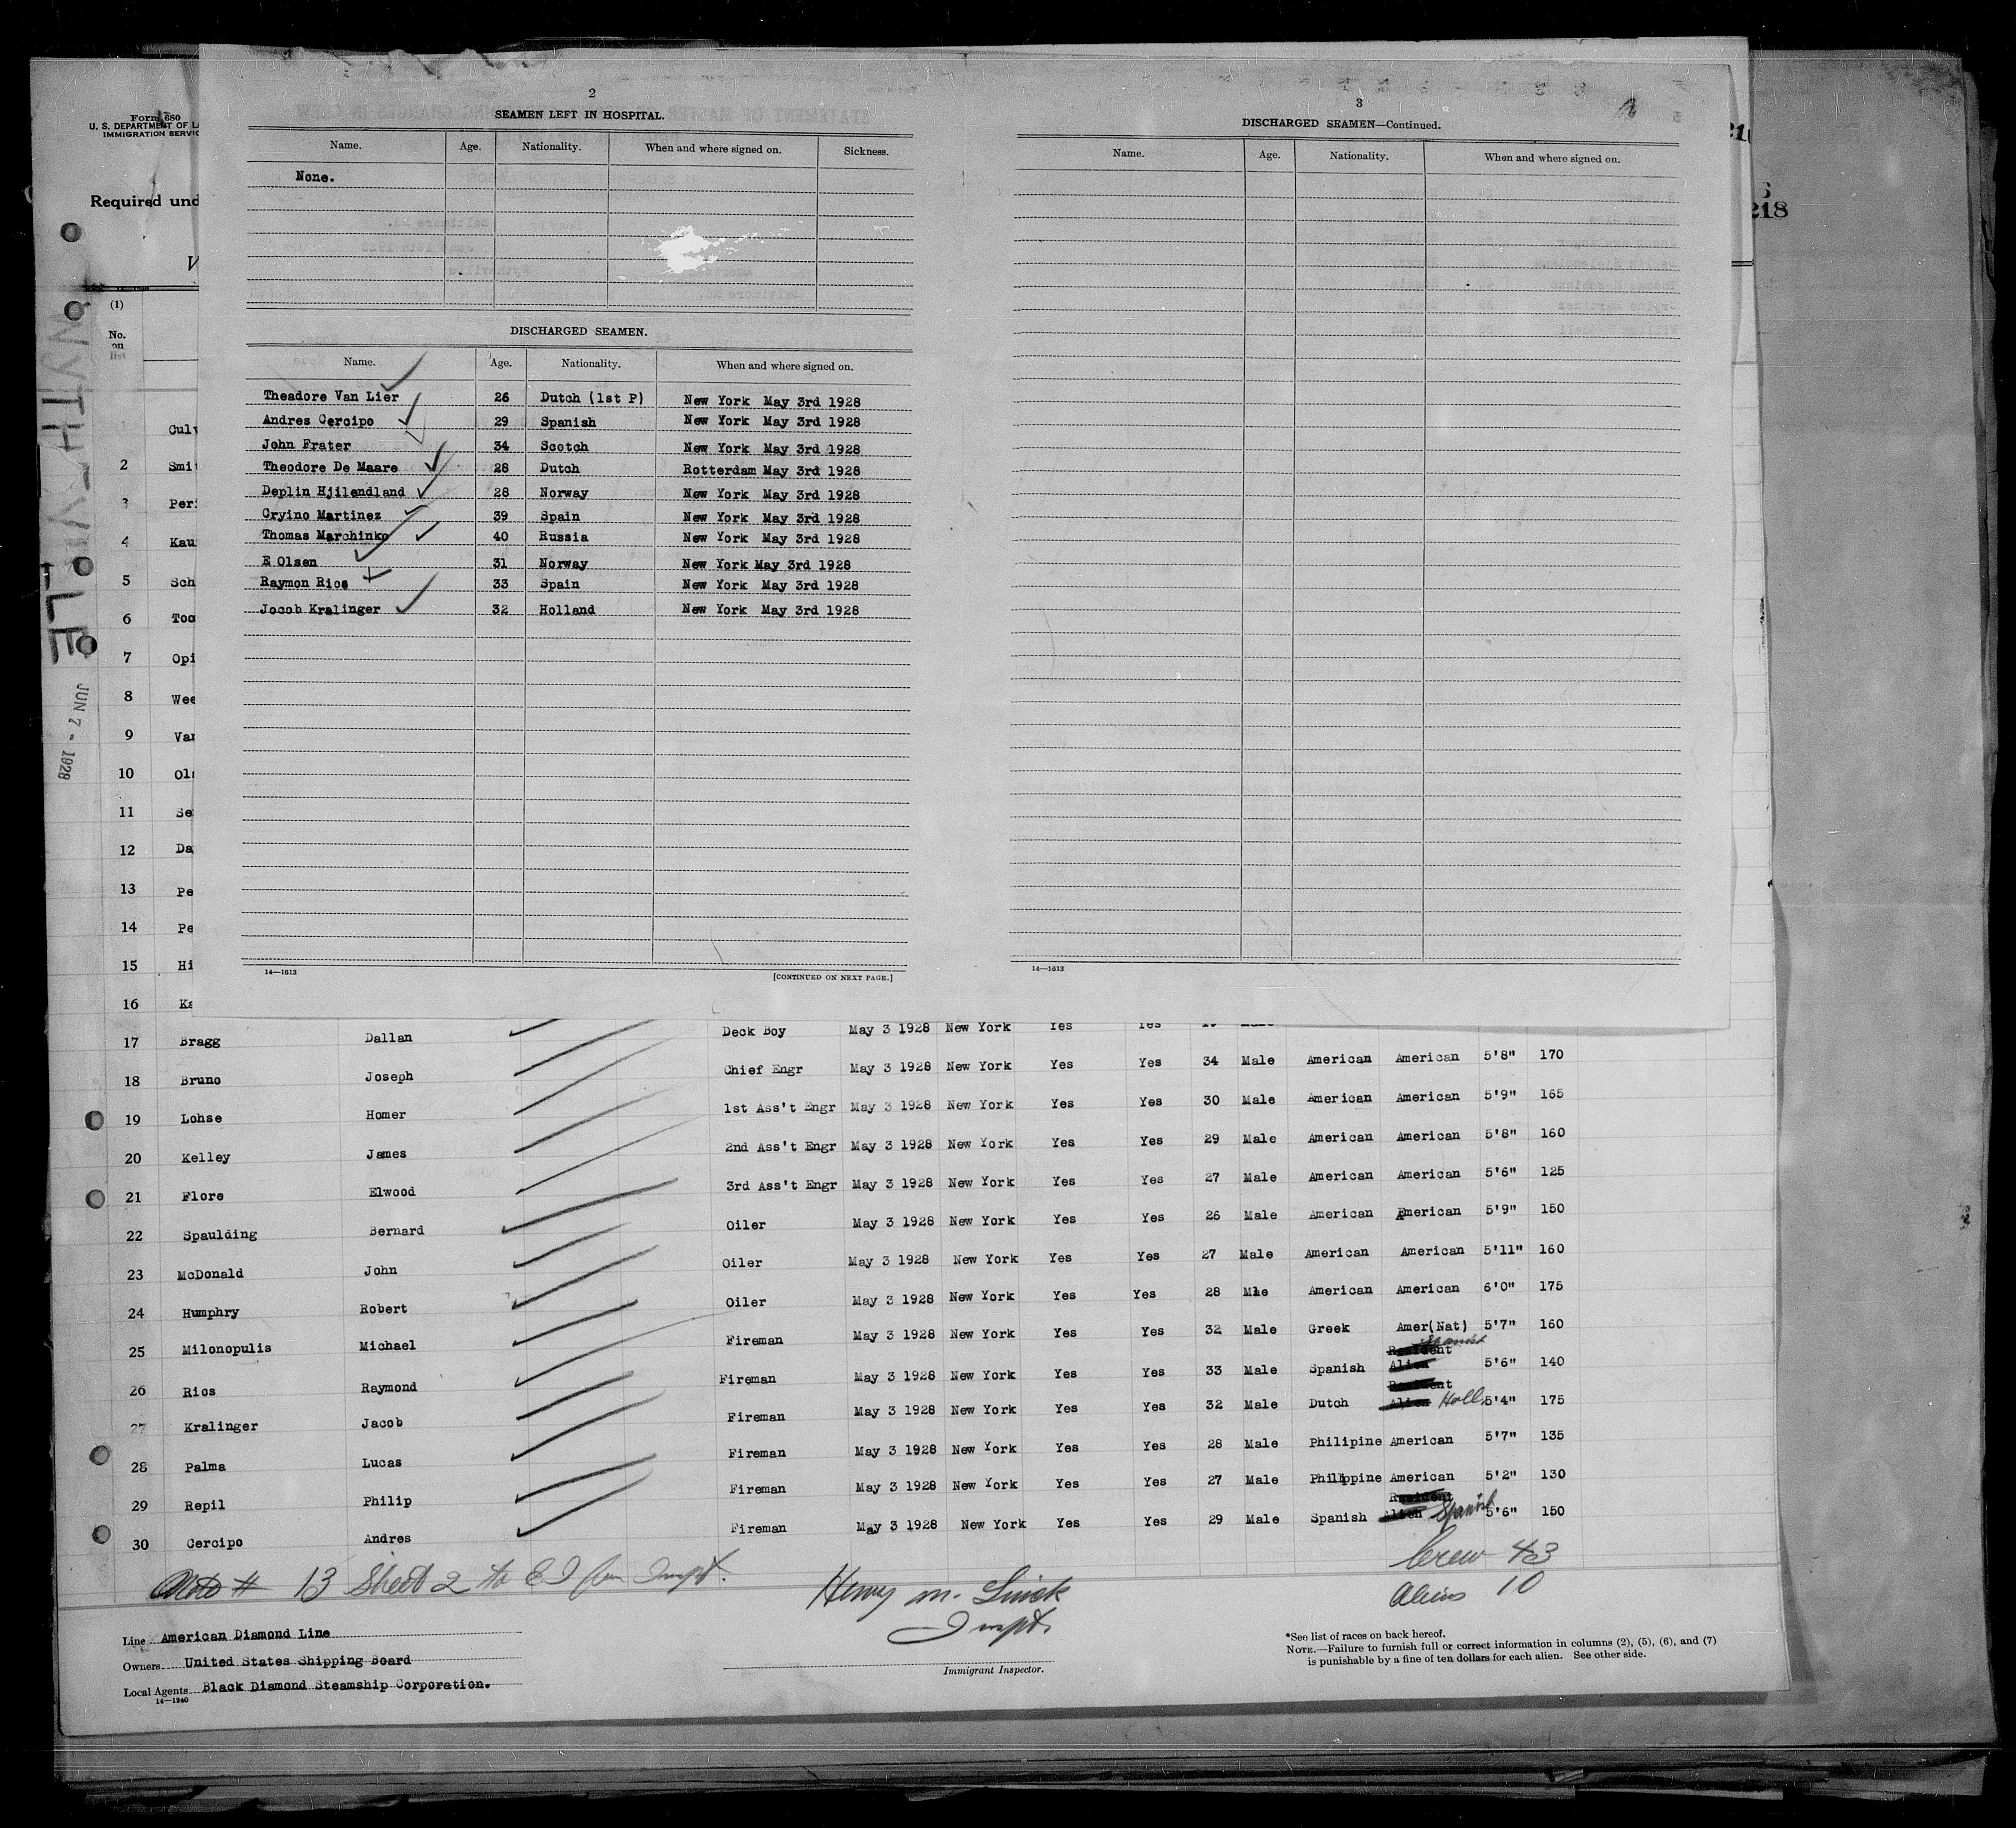 Form 680
U. S. DEPARTMENT OF L
IMMIGRATION SERVIC
Required und
V
(1)
No.
on
list
218
2
SEAMEN LEFT IN HOSPITAL.
Name. Age. Nationality. When and where signed on. Sickness.
None.
DISCHARGED SEAMEN.
Name. Age. Nationality. When and where signed on.
Theadore Van Lier 26 Dutch (1st P) New York May 3rd 1928
Andres Cercipo 29 Spanish New York May 3rd 1928
John Frater 34 Scotch New York May 3rd 1928
Theodore De Maare 28 Dutch Rotterdam May 3rd 1928
Deplin Hjilendland 28 Norway New York May 3rd 1928
Cryino Martinez 39 Spain New York May 3rd 1928
Thomas Marchinko 40 Russia New York May 3rd 1928
E Olsen 31 Norway New York May 3rd 1928
Raymon Rios 33 Spain New York May 3rd 1928
Jocob Kralinger 32 Holland New York May 3rd 1928
14—1613 [CONTINUED ON NEXT PAGE.]
3
DISCHARGED SEAMEN—Continued.
Name. Age. Nationality. When and where signed on.
14—1613
JUN 7 - 1928
Culv
2 Smi
3 Per
4 Kau
5 Sch
6 Too
7 Opi
8 Wee
9 Van
10 Ols
11 Se
12 Da
13 Pe
14 Pe
15 Hi
16 Ka
17 Bragg Dallan Deck Boy May 3 1928 New York Yes Yes
18 Bruno Joseph Chief Engr May 3 1928 New York Yes Yes 34 Male American American 5'8" 170
19 Lohse Homer 1st Ass't Engr May 3 1928 New York Yes Yes 30 Male American American 5'9" 165
20 Kelley James 2nd Ass't Engr May 3 1928 New York Yes Yes 29 Male American American 5'8" 160
21 Flore Elwood 3rd Ass't Engr May 3 1928 New York Yes Yes 27 Male American American 5'6" 125
22 Spaulding Bernard Oiler May 3 1928 New York Yes Yes 26 Male American American 5'9" 150
23 McDonald John Oiler May 3 1928 New York Yes Yes 27 Male American American 5'11" 160
24 Humphry Robert Oiler May 3 1928 New York Yes Yes 28 Mle American American 6'0" 175
25 Milonopulis Michael Fireman May 3 1928 New York Yes Yes 32 Male Greek Amer(Nat) 5'7" 160
26 Rios Raymond Fireman May 3 1928 New York Yes Yes 33 Male Spanish Resident Alien Spanish 5'6" 140
27 Kralinger Jacob Fireman May 3 1928 New York Yes Yes 32 Male Dutch Resident Alien Holl 5'4" 175
28 Palma Lucas Fireman May 3 1928 New York Yes Yes 28 Male Philipine American 5'7" 135
29 Repil Philip Fireman May 3 1928 New York Yes Yes 27 Male Philippine American 5'2" 130
30 Cercipo Andres Fireman May 3 1928 New York Yes Yes 29 Male Spanish Resident Alien Spanish 5'6" 150
Note # 13 Sheet 2 to Inspt.
Crew 43
Aliens 10
Henry M.
Inspt.
Immigrant Inspector.
Line American Diamond Line
Owners United States Shipping Board
Local Agents Black Diamond Steamship Corporation.
14—1240
*See list of races on back hereof.
NOTE.—Failure to furnish full or correct information in columns (2), (5), (6), and (7)
is punishable by a fine of ten dollars for each alien. See other side.